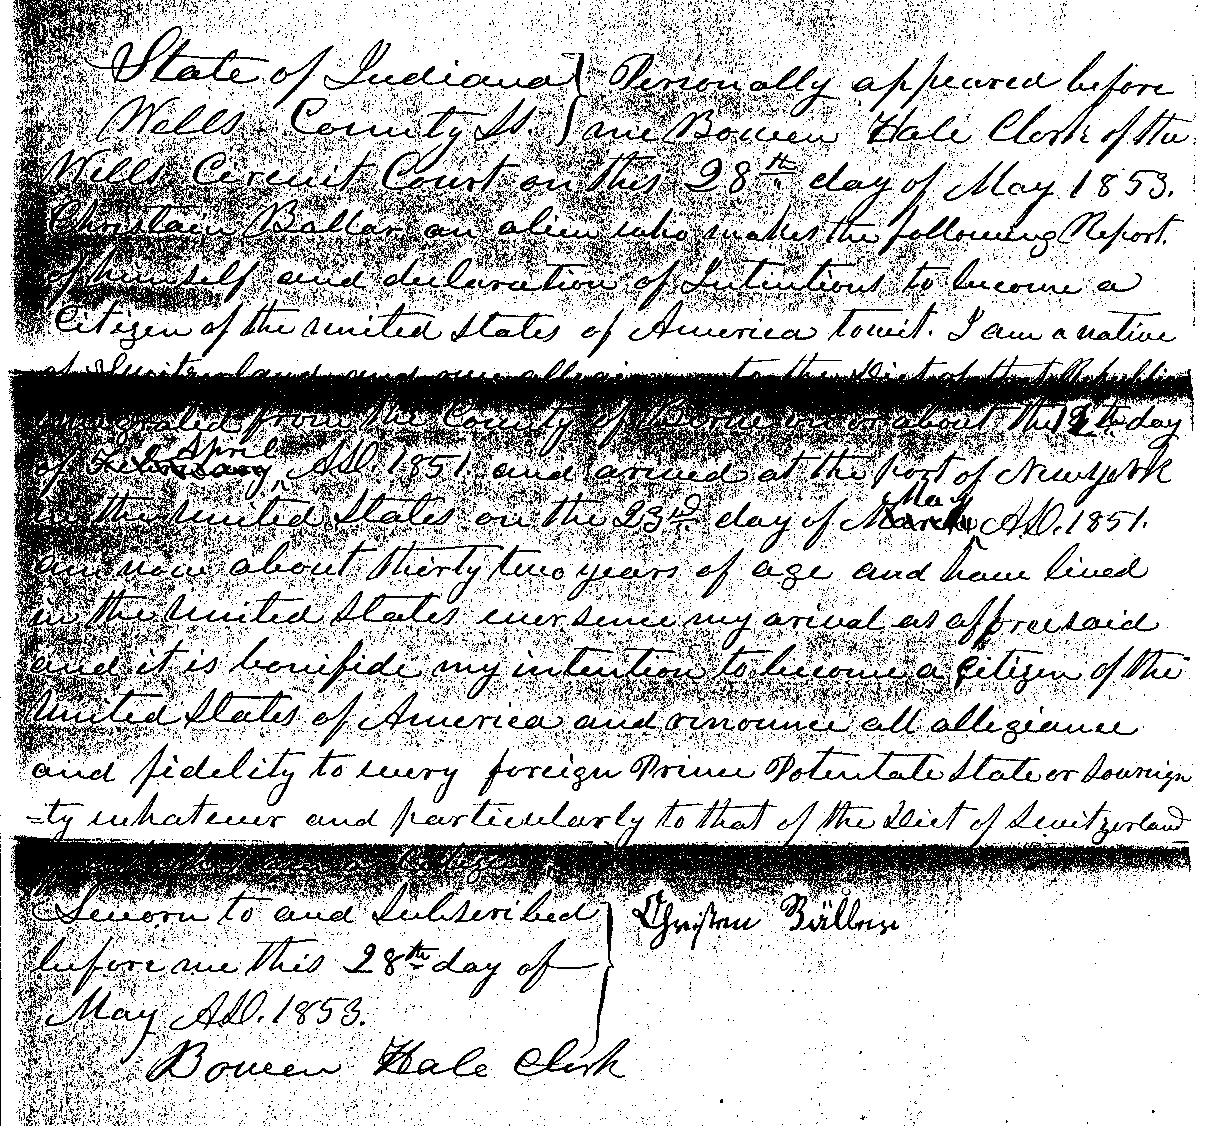 State of Indiana } Personally appeared before
Wells County Ss. } me Bowen Hale Clerk of the
Wells Circuit Court on this 28th day of May 1853.
Christain Ballar an alien who makes the following Report.
of himself and declaration of Intentions to become a
Citizen of the united States of America towit. I am a native
of Switzerland and owe allegiance to the Diet of that Republic
emigrated from the County of Berne on or about the 12th day
of April A.D. 1851 and arrived at the port of New york
in the United States on the 23d day of May A.D. 1851.
am now about thirty two years of age and have lived
in the United States ever sence my arival as afforesaid
and it is bonifide my intention to become a Citizen of the
United States of America and renounce all allegiance
and fidelity to every foreign Prince Potentate State or Sovereign
=ty whatever and particularly to that of the Diet of Switzerland
Sworn to and Subscribed } Christen Bäller
before me this 28th day of
May A.D. 1853.
Bowen Hale Clerk